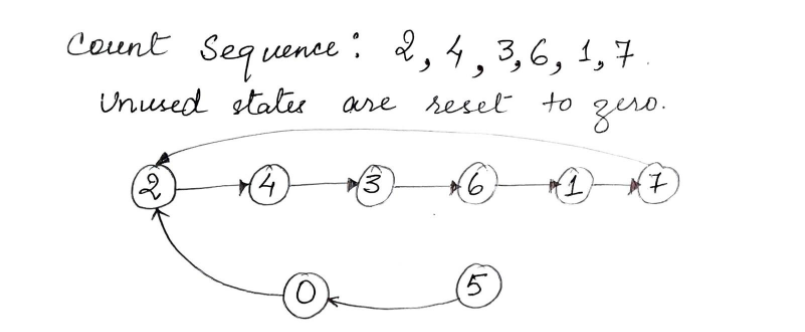 Count Sequence: 2, 4, 3, 6, 1, 7.
Unused states are reset to zero.
2 4 3 6 1 7
0 5